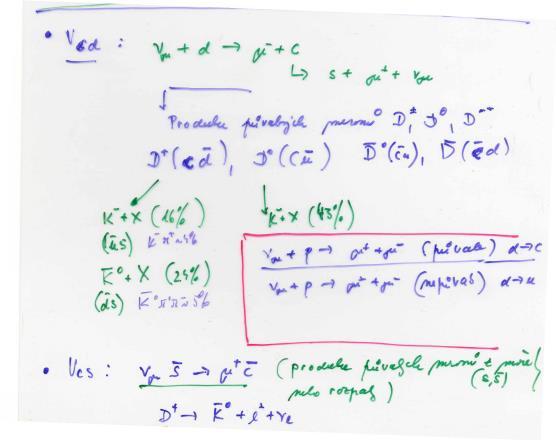 • Vcd : νμ + d → μ⁻ + c
↳ s + μ⁺ + νμ
Produkce půvabných mesonů D⁺, D⁰, D⁻
D⁺(c d̄), D⁰(c ū) D̄⁰(c̄u), D̄(c̄d)
K⁻+X (16%) K⁻+X (43%)
(ūs)
K̄⁰+X (24%)
(d̄s)
νμ + p → μ⁺+μ⁻ (půvab) d→c
νμ + p → μ⁺+μ⁻ (nepůvab) d→u
• Vcs : νμ s̄ → μ⁺ c̄ (produkce půvabných mesonů z moře
(s,s̄)
nebo rozpad)
D⁺ → K̄⁰ + l⁺ + νe